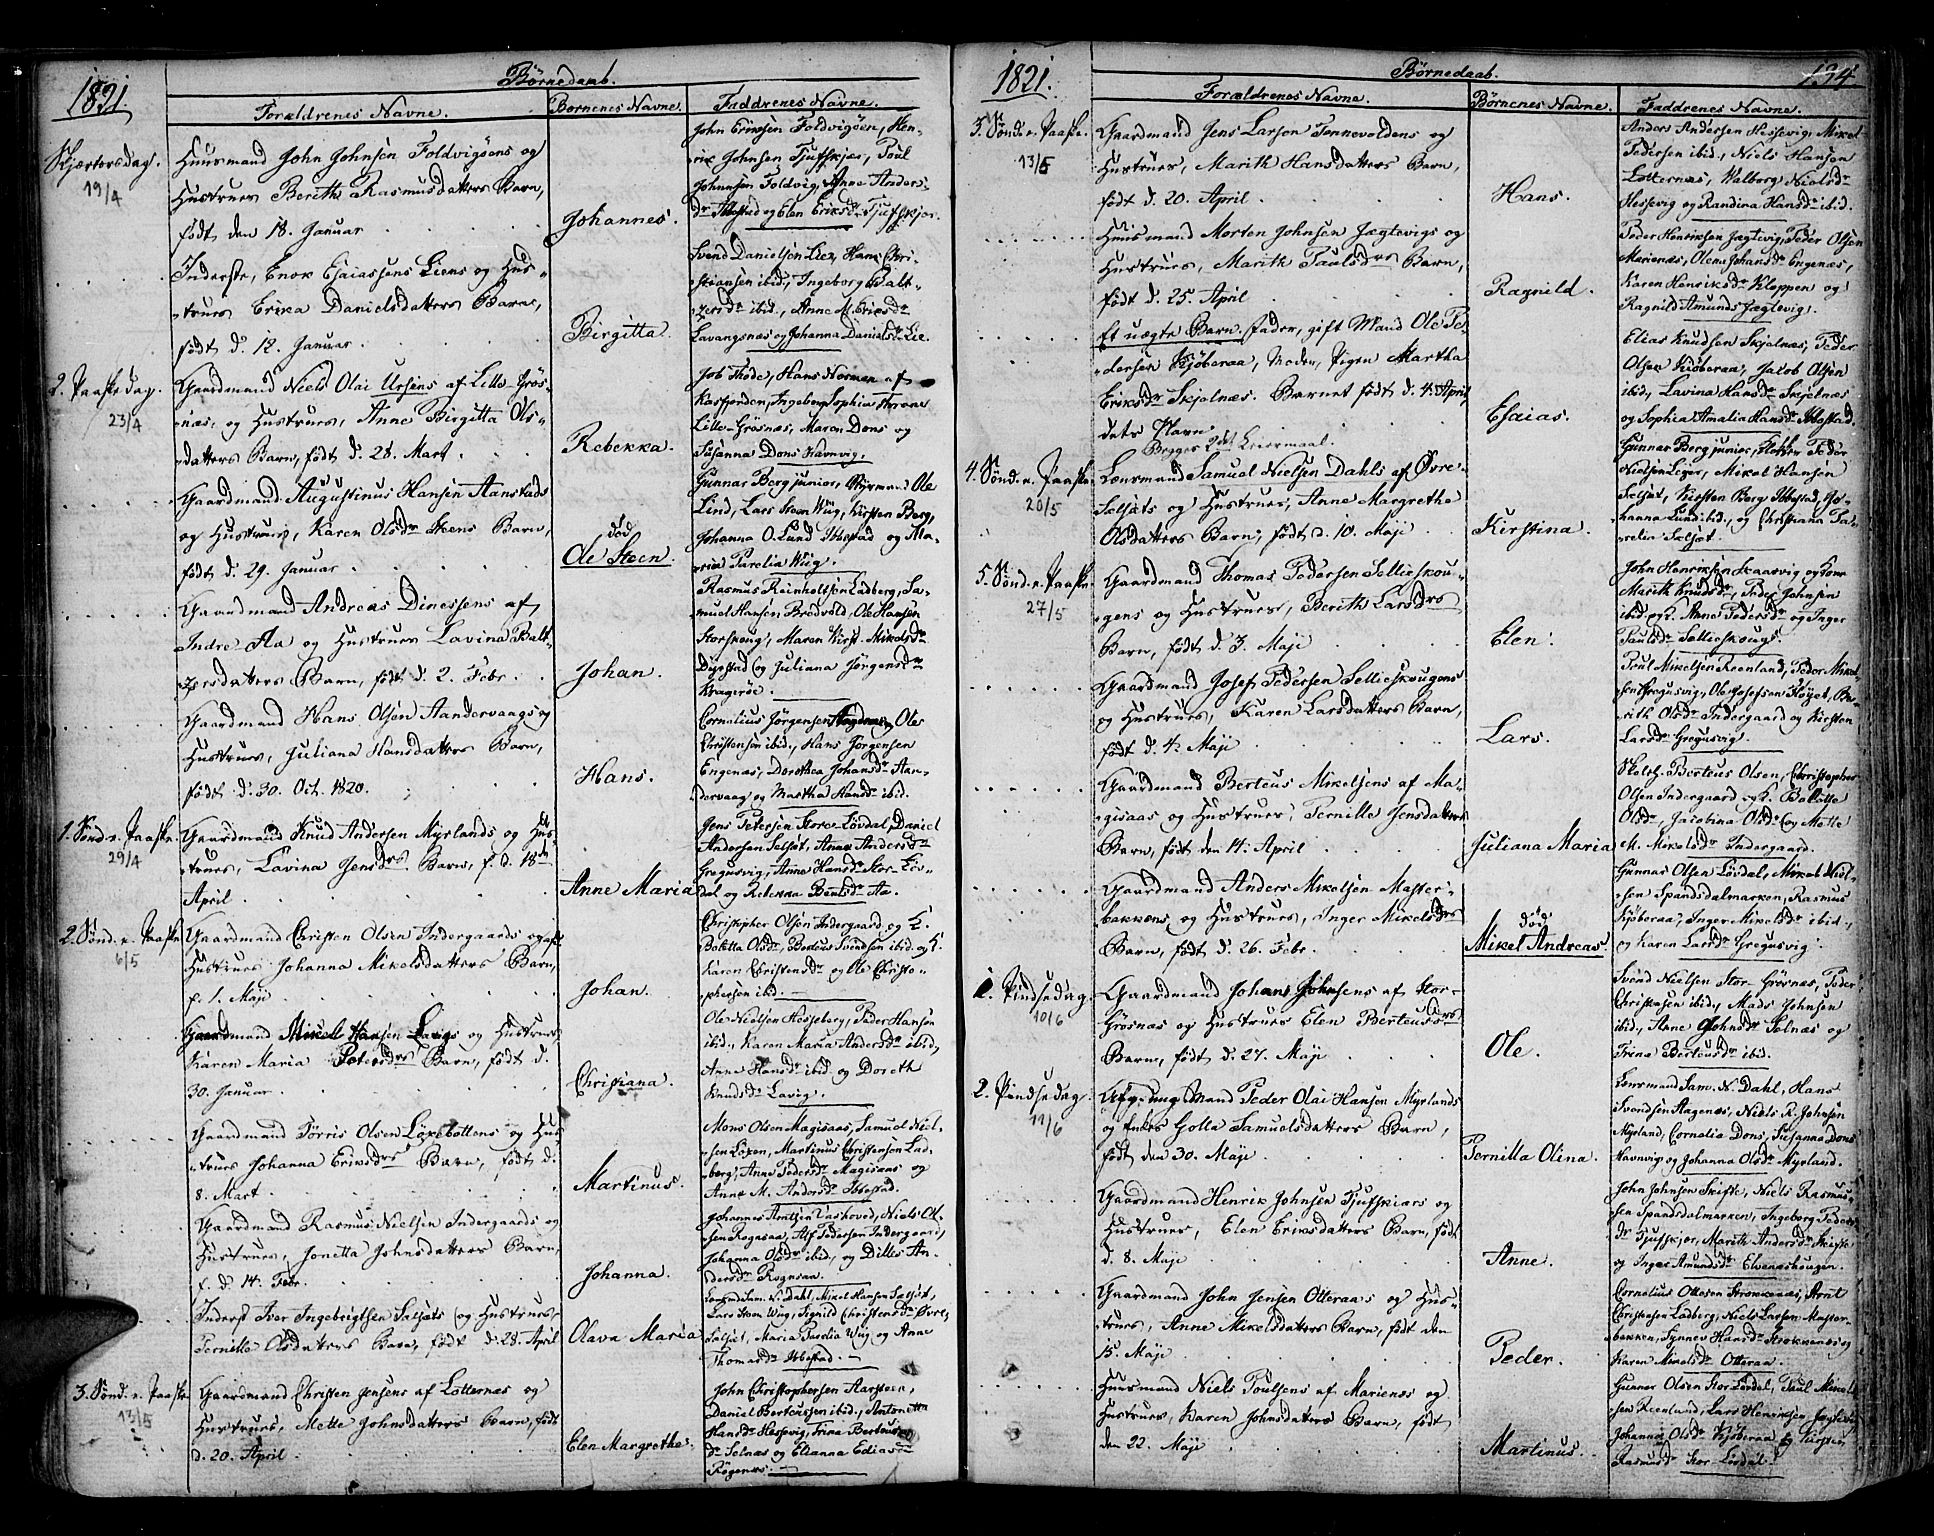 1821.
Børnedaab.
Forældrenes Navne.
Børnenes Navne.
Faddrenes Navne.
Skjærtorsdag.
19/4
Huusmand John Johnsen Foldvigöens og
Hustrues Berith Rasmusdatters Barn,
födt den 18. Januar
Johannes.
John Eriksen Foldvigöen, Hen-
rik Johnsen Tjufskjær, Poul
Johnsen Foldvig, Anne Anders-
dr Ibbestad og Elen Eriksdr Tjufskjær.
Inderste, Enok Esaiassens Liens og Hus-
trues Erika Danielsdatters Barn,
födt d. 12. Januar.
Birgitta.
Svend Danielsen Lien, Hans Chri-
stiansen ibid., Ingeborg Balt-
zersdr ibid., Anne M. Eriksdr
Lavangsnæs og Johanna Danielsdr Lie.
2. Paaskedag.
23/4
Gaardmand Niels Olai Ursens af Lille-Grös-
næs, og Hustrues, Anne Birgitta Ols-
datters Barn, födt d. 28. Mart.
Rebekka.
Job Thode, Hans Normen af
Kasfjorden, Ingeborg Sophia
Lille-Grösnæs, Maren Dons og
Susanna Dons Havnvig.
Gaardmand Augustinus Hansen Aanstads
og Hustrues, Karen Olsdr Steens Barn,
födt d. 29. Januar
död
Ole Steen.
Gunnar Berg junior, Styrmand Ole
Lind, Lars Steen Wüg, Kirsten Berg,
Johanna O. Lund Ibbestad og Ma-
ria Parelia Wüg.
Gaardmand Andreas Dinessens af
Indre Aa og Hustrues Lavina Balt-
zersdatters Barn, födt d. 2. Febr.
Johan.
Rasmus Reinholtsen Ladberg, Sa-
muel Hansen Bredvold, Ole Hansen
Storskoug, Maren Kirst. Mikelsdr
Dypstad og Juliana Jörgensdr
Krageröe.
Gaardmand Hans Olsen Aandervaags og
Hustrues, Juliana Hansdatters Barn,
födt d. 30. Oct. 1820.
Hans.
Cornelius Jörgensen Aagenæs, Ole
Christensen ibid., Hans Jörgensen
Engenæs, Dorothea Johansdr Aan-
dervaag og Martha Hansdr ibid.
1. Sönd. e. Paaske.
29/4
Gaardmand Knud Andersen Myrlands og Hus-
trues, Lavina Jensdrs Barn, f. d. 18de
April.
Anne Maria
Jens Petersen Store-Lövdal, Daniel
Andersen Selset, Anne Andersdr
Gregusvig, Anne Hansdr Stor-Löv-
dal og Rebekka Bentsdr Aa.
2. Sönd. e. Paaske
6/5
Gaardmand Christen Olsens Indergaards og
Hustrues Johanna Mikelsdatters Barn,
f. 1. Maji
Johan.
Christopher Olsen Indergaard og K.
Boletta Olsdr, Berteus Svendsen ibid. og K.
Karen Christensdr og Ole Christo-
phersen ibid.
Gaardmand Mikel Hansen Lavigs og Hustrues
Karen Maria Petersdrs Barn, födt d.
30. Januar
Christiana.
Ole Nielsen Hesseberg, Peder Hansen
ibid., Karen Maria Andersdr ibid.,
Anne Hansdr ibid. og Doreth
Knudsdr Lavig.
Gaardmand Törris Olsen Löxebottens og Hus-
trues Johanna Eriksdrs Barn, födt d.
8. Mart.
Martinus.
Mons Olsen Magisaas, Samuel Niel-
sen Löxen, Martinus Christensen Lad-
berg, Anne Pedersdr Magisaas og
Anne M. Andersdr Ibbestad.
Gaardmand Rasmus Nielsen Indergaards og
Hustrues, Jonetta Johnsdatters Barn,
f. d. 14. Febr.
Johanna.
Johannes Arntsen Vashoved, Niels Ol-
sen Rognsaa, Alf Pedersen Indergaard,
Johanna Olsdr ibid., og Dilles An-
dersdr Rognsaa.
Inderst Iver Ingebrigtsen Selsets og Hustrues
Pernille Olsdatters Barn, födt d. 28. April
Olava Maria
Lensmd Sam. N. Dahl, Mikel Hansen Selset,
Lars Steen Wüg, Signild Christensdr Övre
Selset, Maria Parelia Wüg, og Anne
Thomasdr Ibbestad.
3. Sönd. e. Paaske
13/5
Gaardmand Christen Jensens af Lotternæs og
Hustrues, Mette Johnsdatters Barn, födt
d. 20. April.
Elen Margrethe.
John Christophersen Aarsteen,
Daniel Berteussen ibid., Antonetta
Hansdr Hessevig, Trina Berteus-
dr Solnæs og Elianna Ediasdr
Rögenæs.
1821.
Børnedaab.
134.
Forældrenes Navne.
Børnenes Navne.
Faddrenes Navne.
3. Sönd. e. Paaske.
13/5
Gaardmand Jens Larsen Tennevoldens og
Hustrues, Marith Hansdatters Barn,
födt d. 20. April.
Hans.
Anders Andersen Hessevig, Mikel
Pedersen ibid., Niels Hansen
Lotternæs, Walborg Nielsdr
Hessevig og Randina Hansdr ibid.
Huusmand Morten Johnsen Jægtevigs og
Hustrues, Marith Paulsdrs Barn,
födt d. 25. April
Ragnild.
Peder Henriksen Jægtevig, Peder Olsen
Marienæs, Olena Johansdr Engenæs,
Karen Henriksdr Kloppen og
Ragnild Amundsdr Jægtevig.
Et uægte Barn. Faderen, gift Mand Ole Pe-
dersen Kjöberaa, Moderen, Pigen Martha
Eriksdr Skjelnæs. Barnet födt d. 4. April,
dets Navn
Begges 2det Leiermaal.
Esaias.
Elias Knudsen Skjelnæs, Peder
Olsen Kjöberaa, Jakob Olsen
ibid., Lavina Hansdr Skjelnæs
og Sophia Amalia Hansdr Ibbestad.
4. Sönd. e. Paaske.
20/5
Lensmand Samuel Nielsen Dahls af Övre-
Selsets og Hustrues, Anne Margrethe
Olsdatters Barn, födt d. 10. Maji
Kirstina.
Gunnar Berg junior, Klokker Peder
Nielsen Leger, Mikel Hansen
Selset, Kirsten Berg Ibbestad, Jo-
hanna Lund ibid., og Christiana Pa-
relia Selset.
5. Sönd. e. Paaske.
27/5
Gaardmand Thomas Pedersen Sellieskou-
gens og Hustrues, Berith Larsdrs
Barn, födt d. 3. Maji
Elen.
John Henriksen Skaarvig og Kone
Marith Knudsdr, Peder Johnsen
ibid. og K. Anne Pedersdr og Inger
Paulsdr Sellieskoug.
Gaardmand Josef Pedersen Sellieskougens
og Hustrues, Karen Larsdatters Barn,
födt d. 4. Maji
Lars.
Poul Mikelsen Reenland, Peder Mikel-
sen Gregusvig, Ole Josefsen Höyet, Be-
rith Olsdr Indergaard og Kirsten
Larsdr Gregusvig.
Gaardmand Berteus Mikelsens af Ma-
gisaas og Hustrues, Pernille Jensdatters
Barn, födt den 14. April
Juliana Maria
Skoleh. Berteus Olsen, Christopher
Olsen Indergaard og K. Boletta
Olsdr, Jacobina Olsdr og Mette
M. Mikelsdr Indergaard.
Gaardmand Anders Mikelsen Mæster-
bakkens og Hustrues, Inger Mikelsdrs
Barn, födt d. 26. Febr.
död
Mikel Andreas.
Gunnar Olsen Lövdal, Mikel Niel-
sen Spandsdalmarken, Rasmus
Kjöberaa, Inger Mikelsdr ibid.,
og Karen Larsdr Gregusvig.
1. Pindsedag.
10/6
Gaardmand Johans Johnsens af Stor-
Grösnæs og Hustrues Elen Berteusdrs
Barn, födt d. 27. Maji
Ole.
Svend Nielsen Stor-Grösnæs, Peder
Christensen ibid., Mads Johnsen
ibid., Anne Johnsdr Solnæs og
Trina Berteusdr ibid.
2. Pindsedag.
11/6
Afg. ung Mand Peder Olai Hansen Myrlands
og Enkes Golla Samuelsdatters Barn,
födt den 30. Maji
Pernilla Olina.
Lensmand Sam. N. Dahl, Hans
Svendsen Aagenæs, Niels R. Johnsen
Myrland, Cornelia Dons, Susanna Dons
Havnvig og Johanna Olsdr Myrland.
Gaardmand Henrik Johnsen Tjufskiærs og
Hustrues, Elen Eriksdatters Barn, födt
d. 8. Maji
Anne.
John Johnsen Skifte, Niels Rasmus-
sen Spandsdalmarken, Ingeborg Peders-
dr Tjufskjær, Marith Andersdr Skifte
og Inger Amundsdr Elvenæshougen.
Gaardmand John Jensen Otteraas og Hus-
trues, Anne Mikelsdatters Barn, födt den
15. Maji
Peder.
Cornelius Ottesen Strokkenæs, Arnt
Christensen Ladberg, Niels Larsen Mæster-
bakken, Synnev Hansdr Strokkenæs og
Karen Mikelsdr Otteraa.
Huusmand Niels Poulsens af Marienæs og
Hustrues, Karen Johnsdatters Barn, födt
den 22. Maji
Martinus.
Gunner Olsen Stor Lövdal, Paul Mikel-
sen Reenland, Lars Henriksen Jægtevig,
Johanna Olsdr Kjöberaa og Kirsten
Rasmusdr Stor Lövdal.